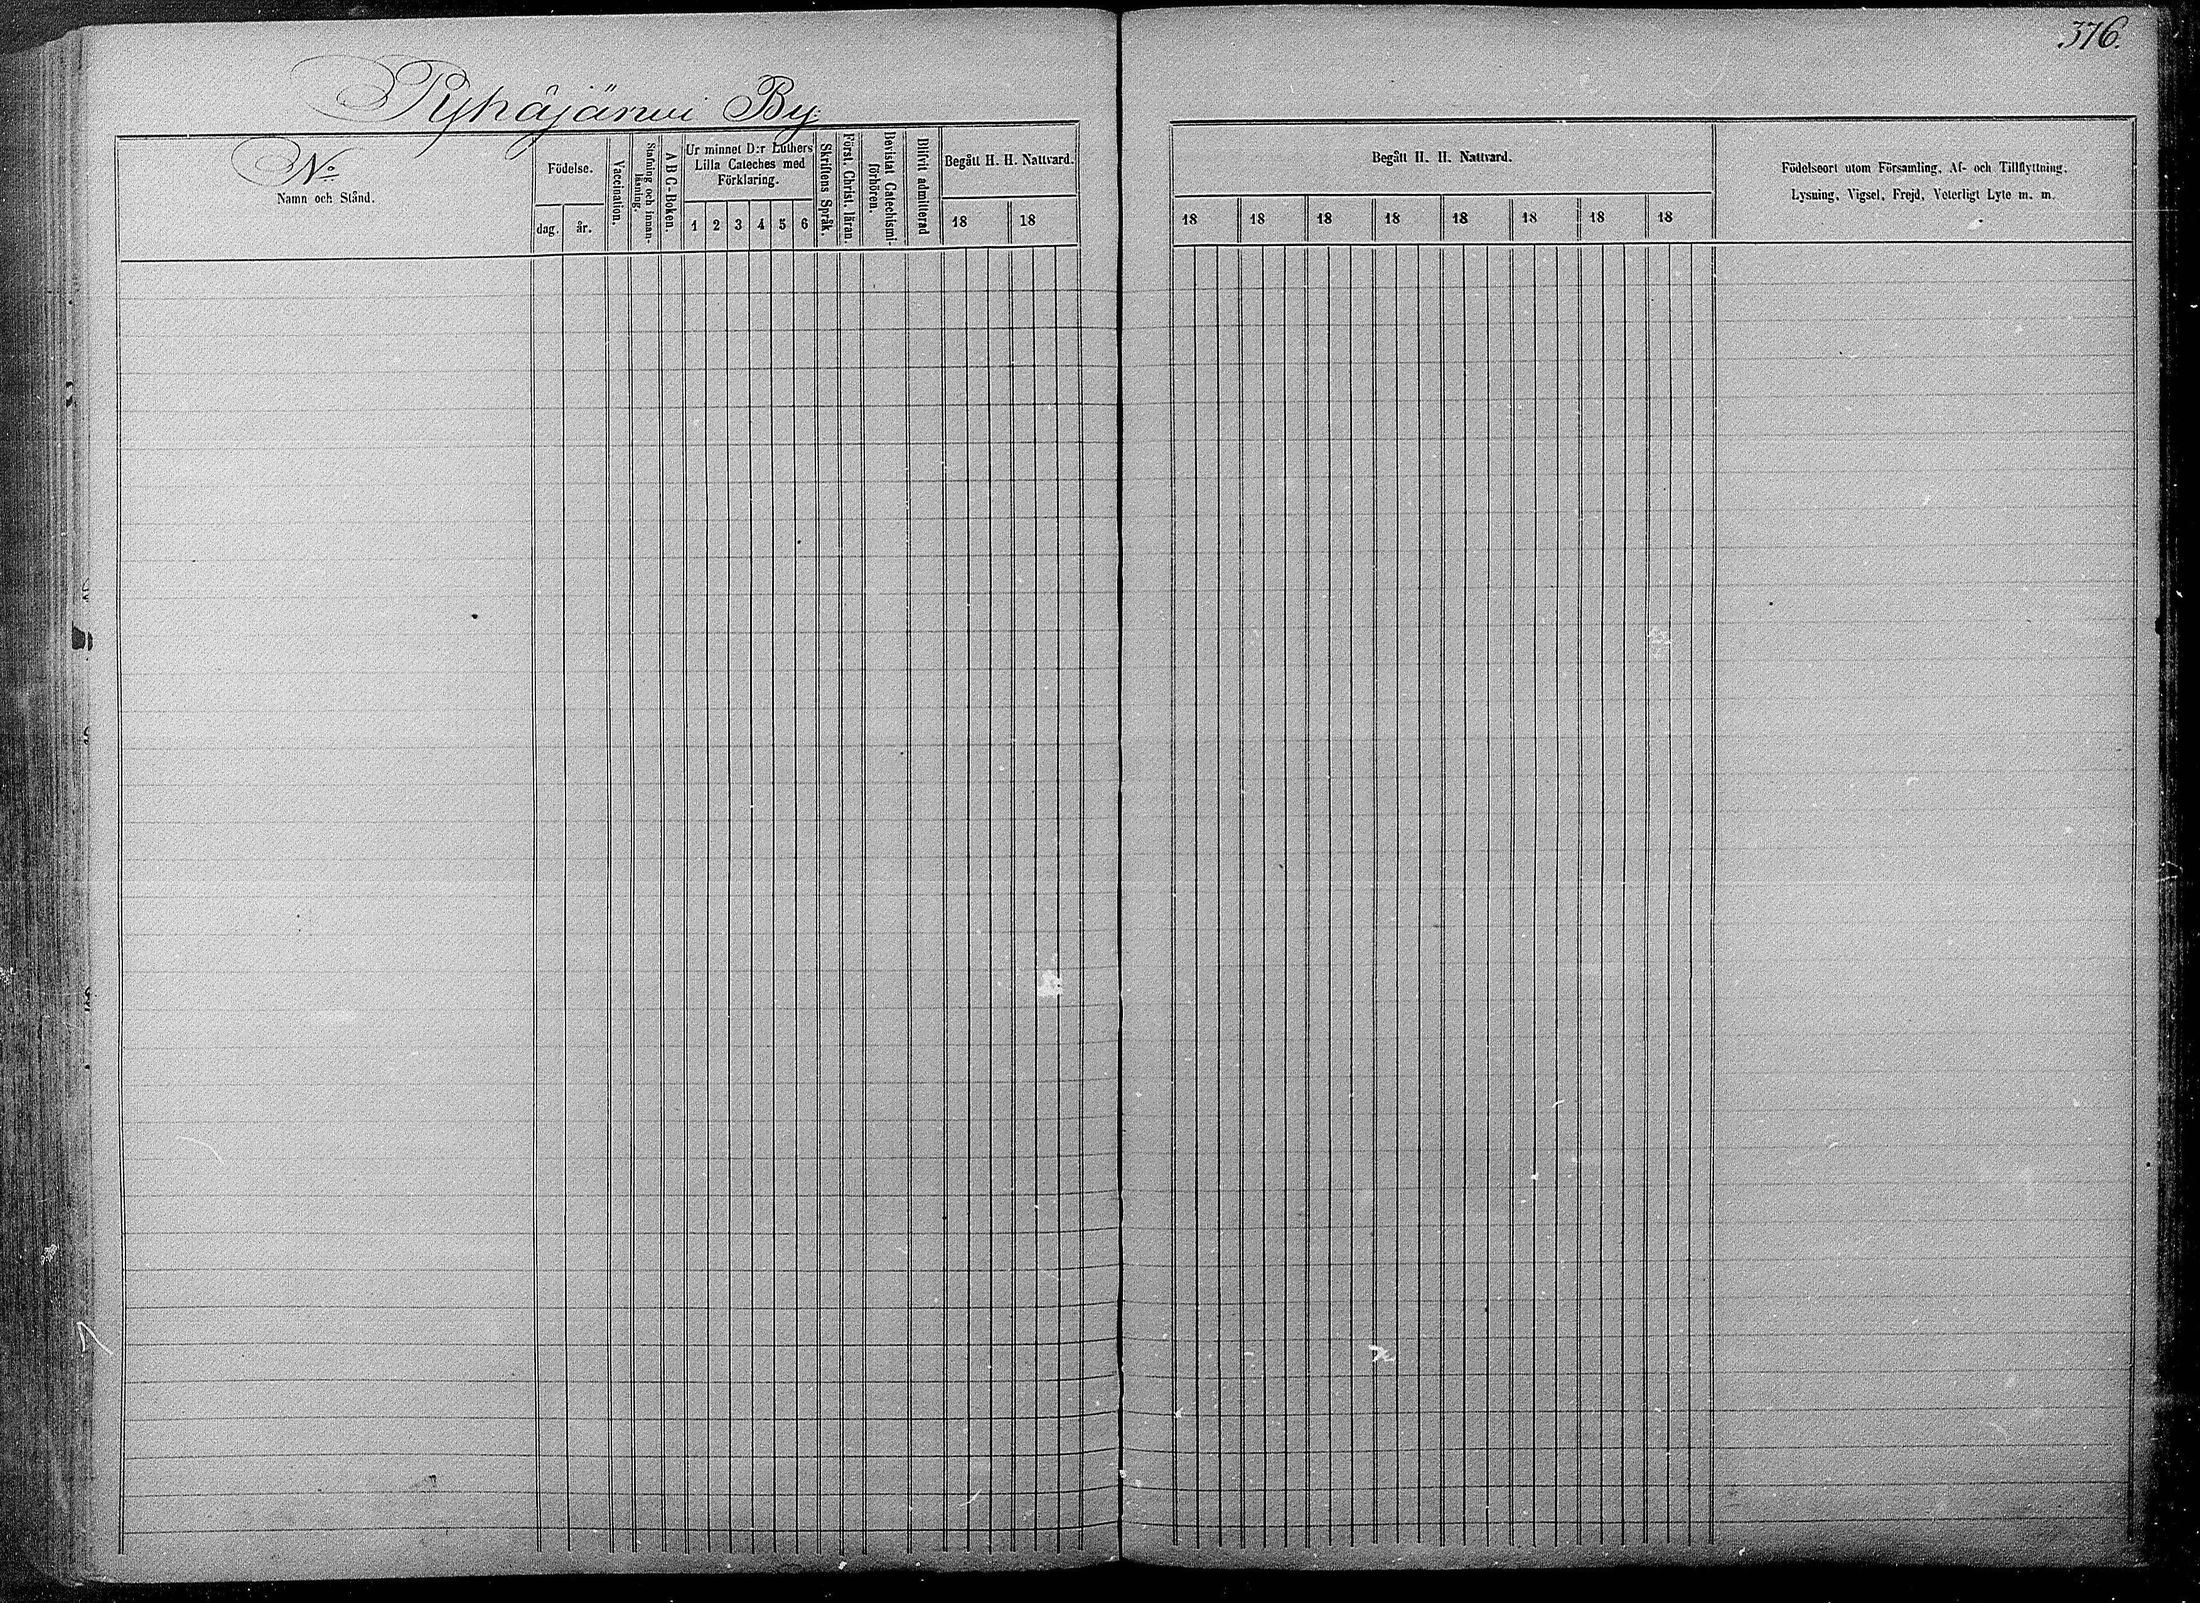 376.
Pyhäjärwi By.
No
Namn och Stånd.
Födelse.
dag.
år.
Vaccination.
Stafning och innan-
läsning.
A B C-Boken.
Ur minnet D:r Luthers
Lilla Cateches med
Förklaring.
1 2 3 4 5 6
Skriftens Språk.
Först. Christ. läran.
Bevistat Catechismi-
förhören.
Blifvit admitterad
Begått H. H. Nattvard.
18 18
Begått H. H. Nattvard.
18 18 18 18 18 18 18 18
Födelseort utom Församling, Af- och Tillflyttning,
Lysning, Vigsel, Frejd, Veterligt Lyte m. m.